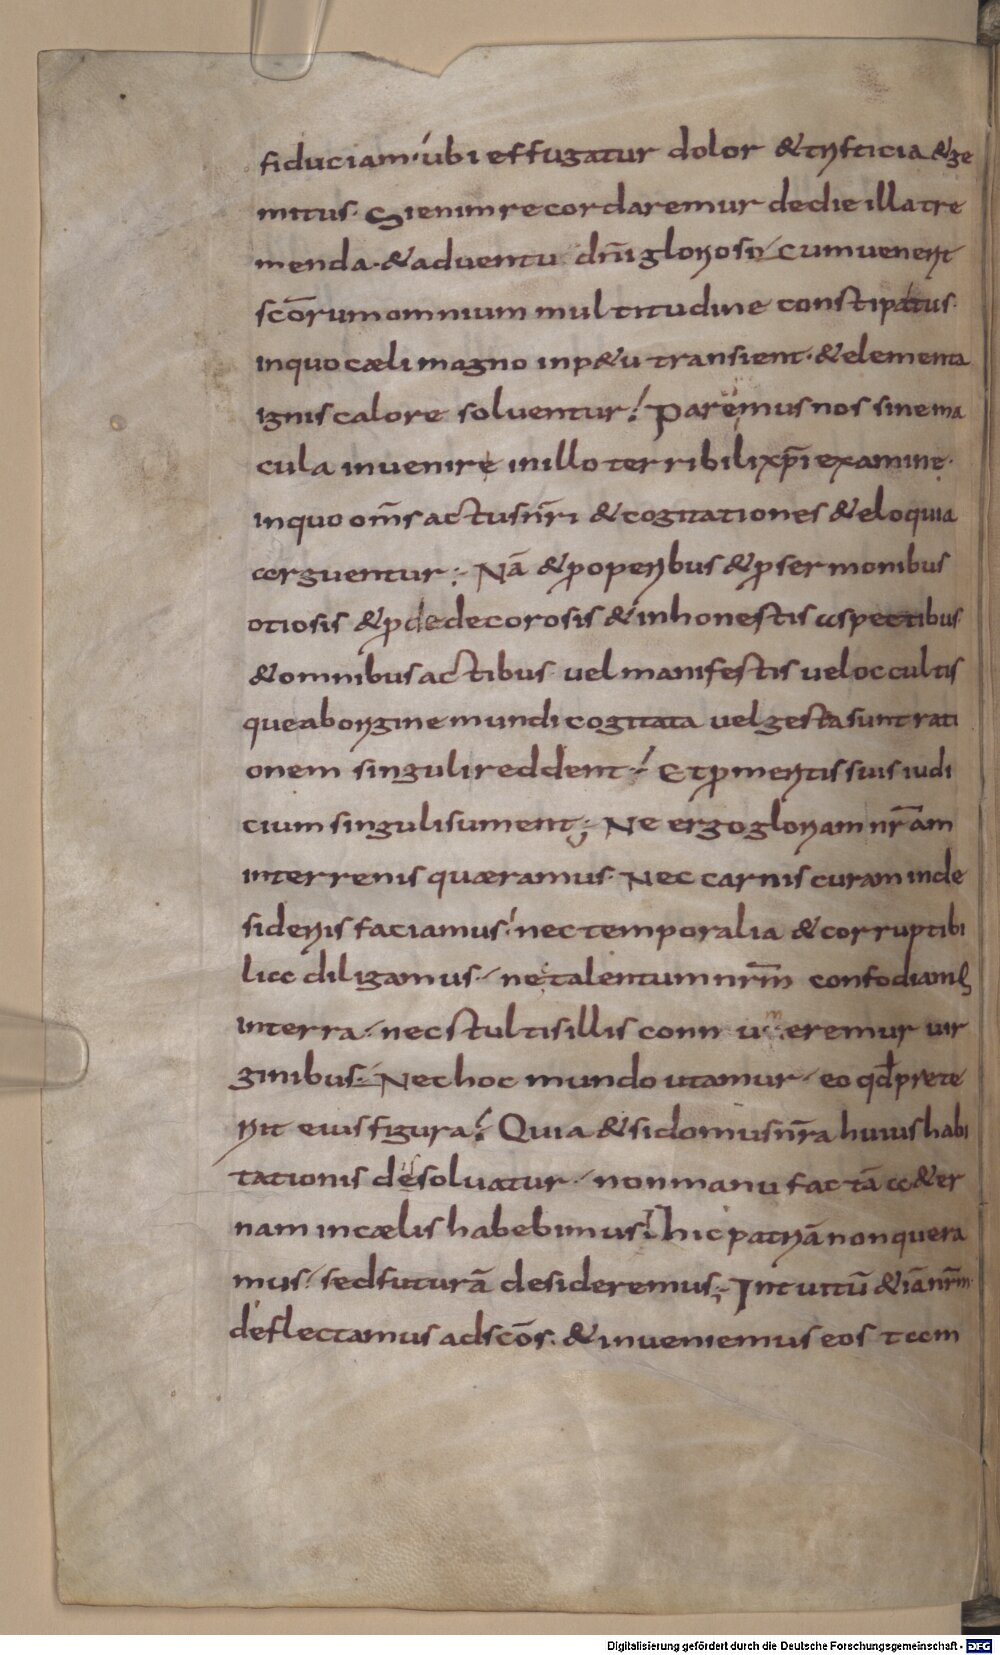 fiduciam· ubi effugatur dolor & trifticia & ge
mitus· Sienim recordaremur dedie illa tre
menda· & adventu dñi gloriosi / cum venerit
scōrum omnium multitudine constipatus·
inquo cæli magno inp&u transient· & elementa
ignis calore solventur! Paremus nos sine ma
cula invenire inillo terribili xp̄i examine·
inquo om̄s actus nr̄i & cogitationes & eloquia
arguentur; Nā & p operibus & p sermonibus
otiosis & p dedecorosis & inhonestis aspectibus
& omnibus actibus· vel manifestis vel occultis
que ab origine mundi cogitata vel gesta sunt rati
onem singuli reddent! Et p meritis suis iudi
cium singuli sument; Ne ergo gloriam nr̄am
interrenis quæramus· Nec carnis curam inde
sideriis faciamus! nec temporalia & corruptibi
lia diligamus· ne talentum nr̄m confodiam;
interra· nec stultis illis conn u eremur vir
ginibus· Nec hoc mundo utamur· eo qd prete
rit eius figura! Quia & si domus nr̄a huius habi
tationis desolvatur· non manu factā a&er
nam in cælis habebimus! hic patriā non quera
mus· sed futurā desideremus; Intuitū & iā nr̄m
deflectamus ad scōs· & inveniemus eos tam
Digitalisierung gefördert durch die Deutsche Forschungsgemeinschaft - DFG